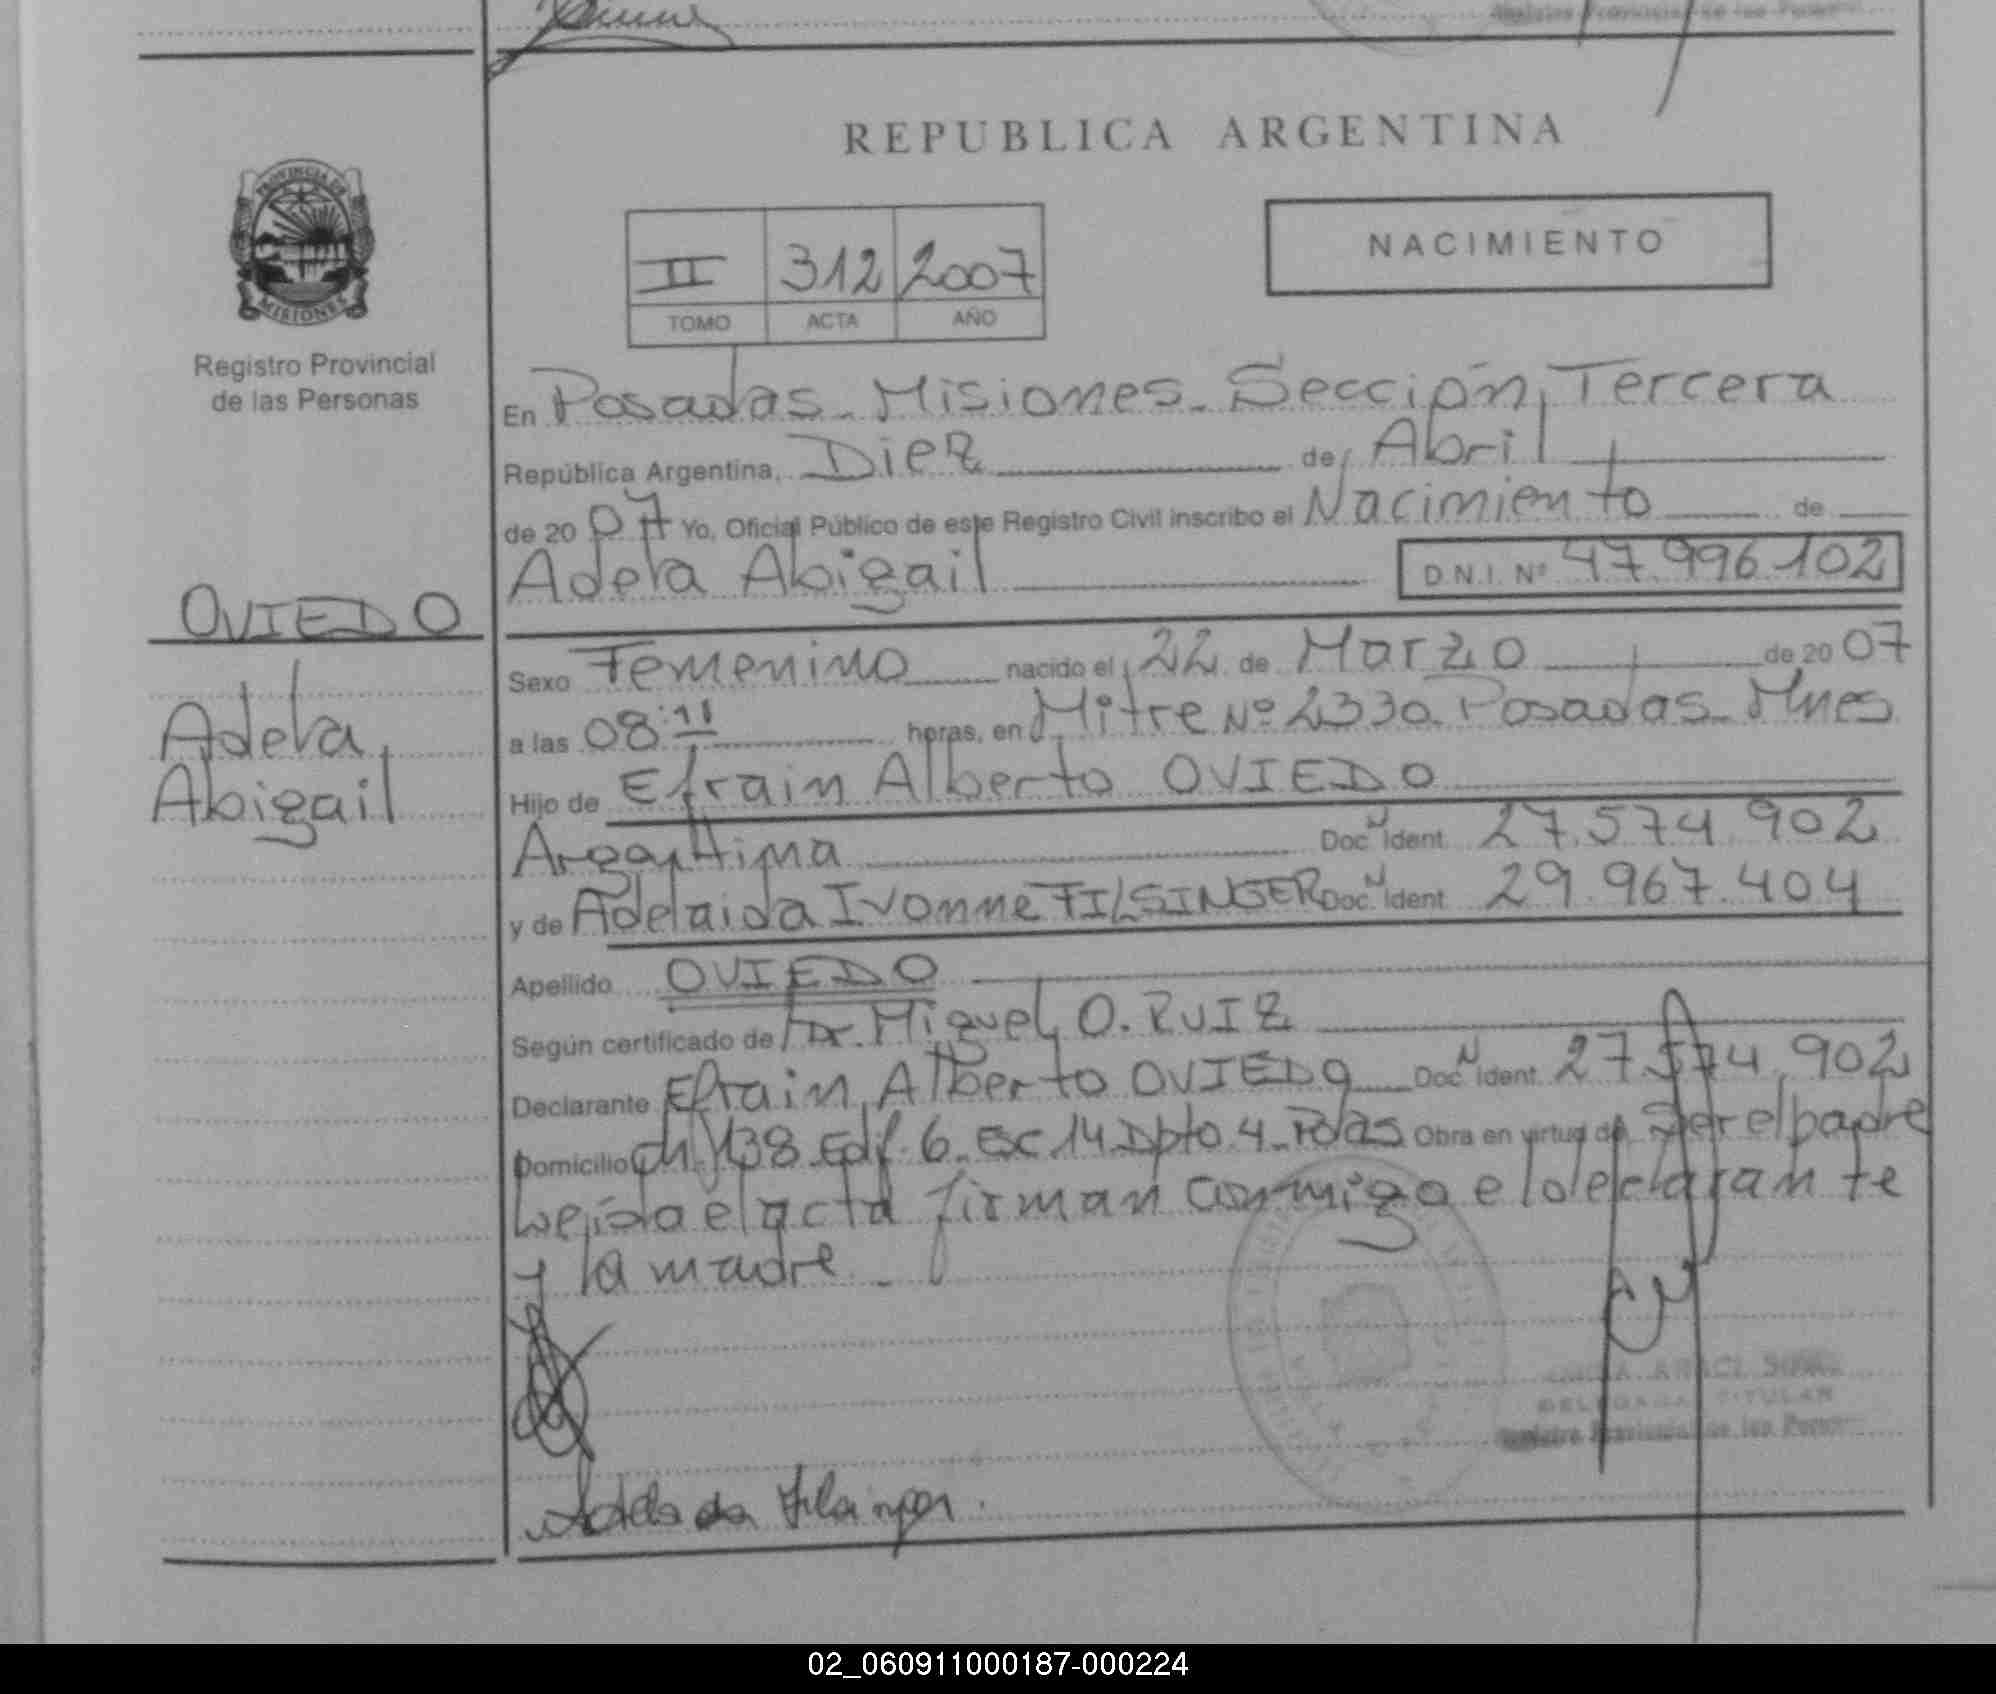 REPUBLICA ARGENTINA
PROVINCIA DE
MISIONES
Registro Provincial
de las Personas
II 312 2007
TOMO ACTA AÑO
NACIMIENTO
En Posadas - Misiones - Sección Tercera
República Argentina, Diez de Abril
de 2007 Yo, Oficial Público de este Registro Civil inscribo el Nacimiento de
Adela Abigail D.N.I. Nº 47.996.102
OVIEDO
Adela
Abigail
Sexo Femenino nacido el 22 de Marzo de 2007
a las 08:11 horas, en Mitre Nº 2330 Posadas - Mnes
Hijo de Efrain Alberto OVIEDO
Argentina Doc. N Ident. 27.574.902
y de Adelaida Ivonne FILSINGER Doc. N Ident. 29.967.404
Apellido OVIEDO
Según certificado de Dr. Miguel O. RUIZ
Declarante Efrain Alberto OVIEDO Doc. N Ident. 27.574.902
Domicilio Ch. 138 Edif. 6 - Esc 14 Dpto 4 - Pdas Obra en virtud de Ser el padre
Leída el acta firman conmigo el declarante
y la madre -
DELEGADA TITULAR
Registro Provincial de las Person
02_060911000187-000224